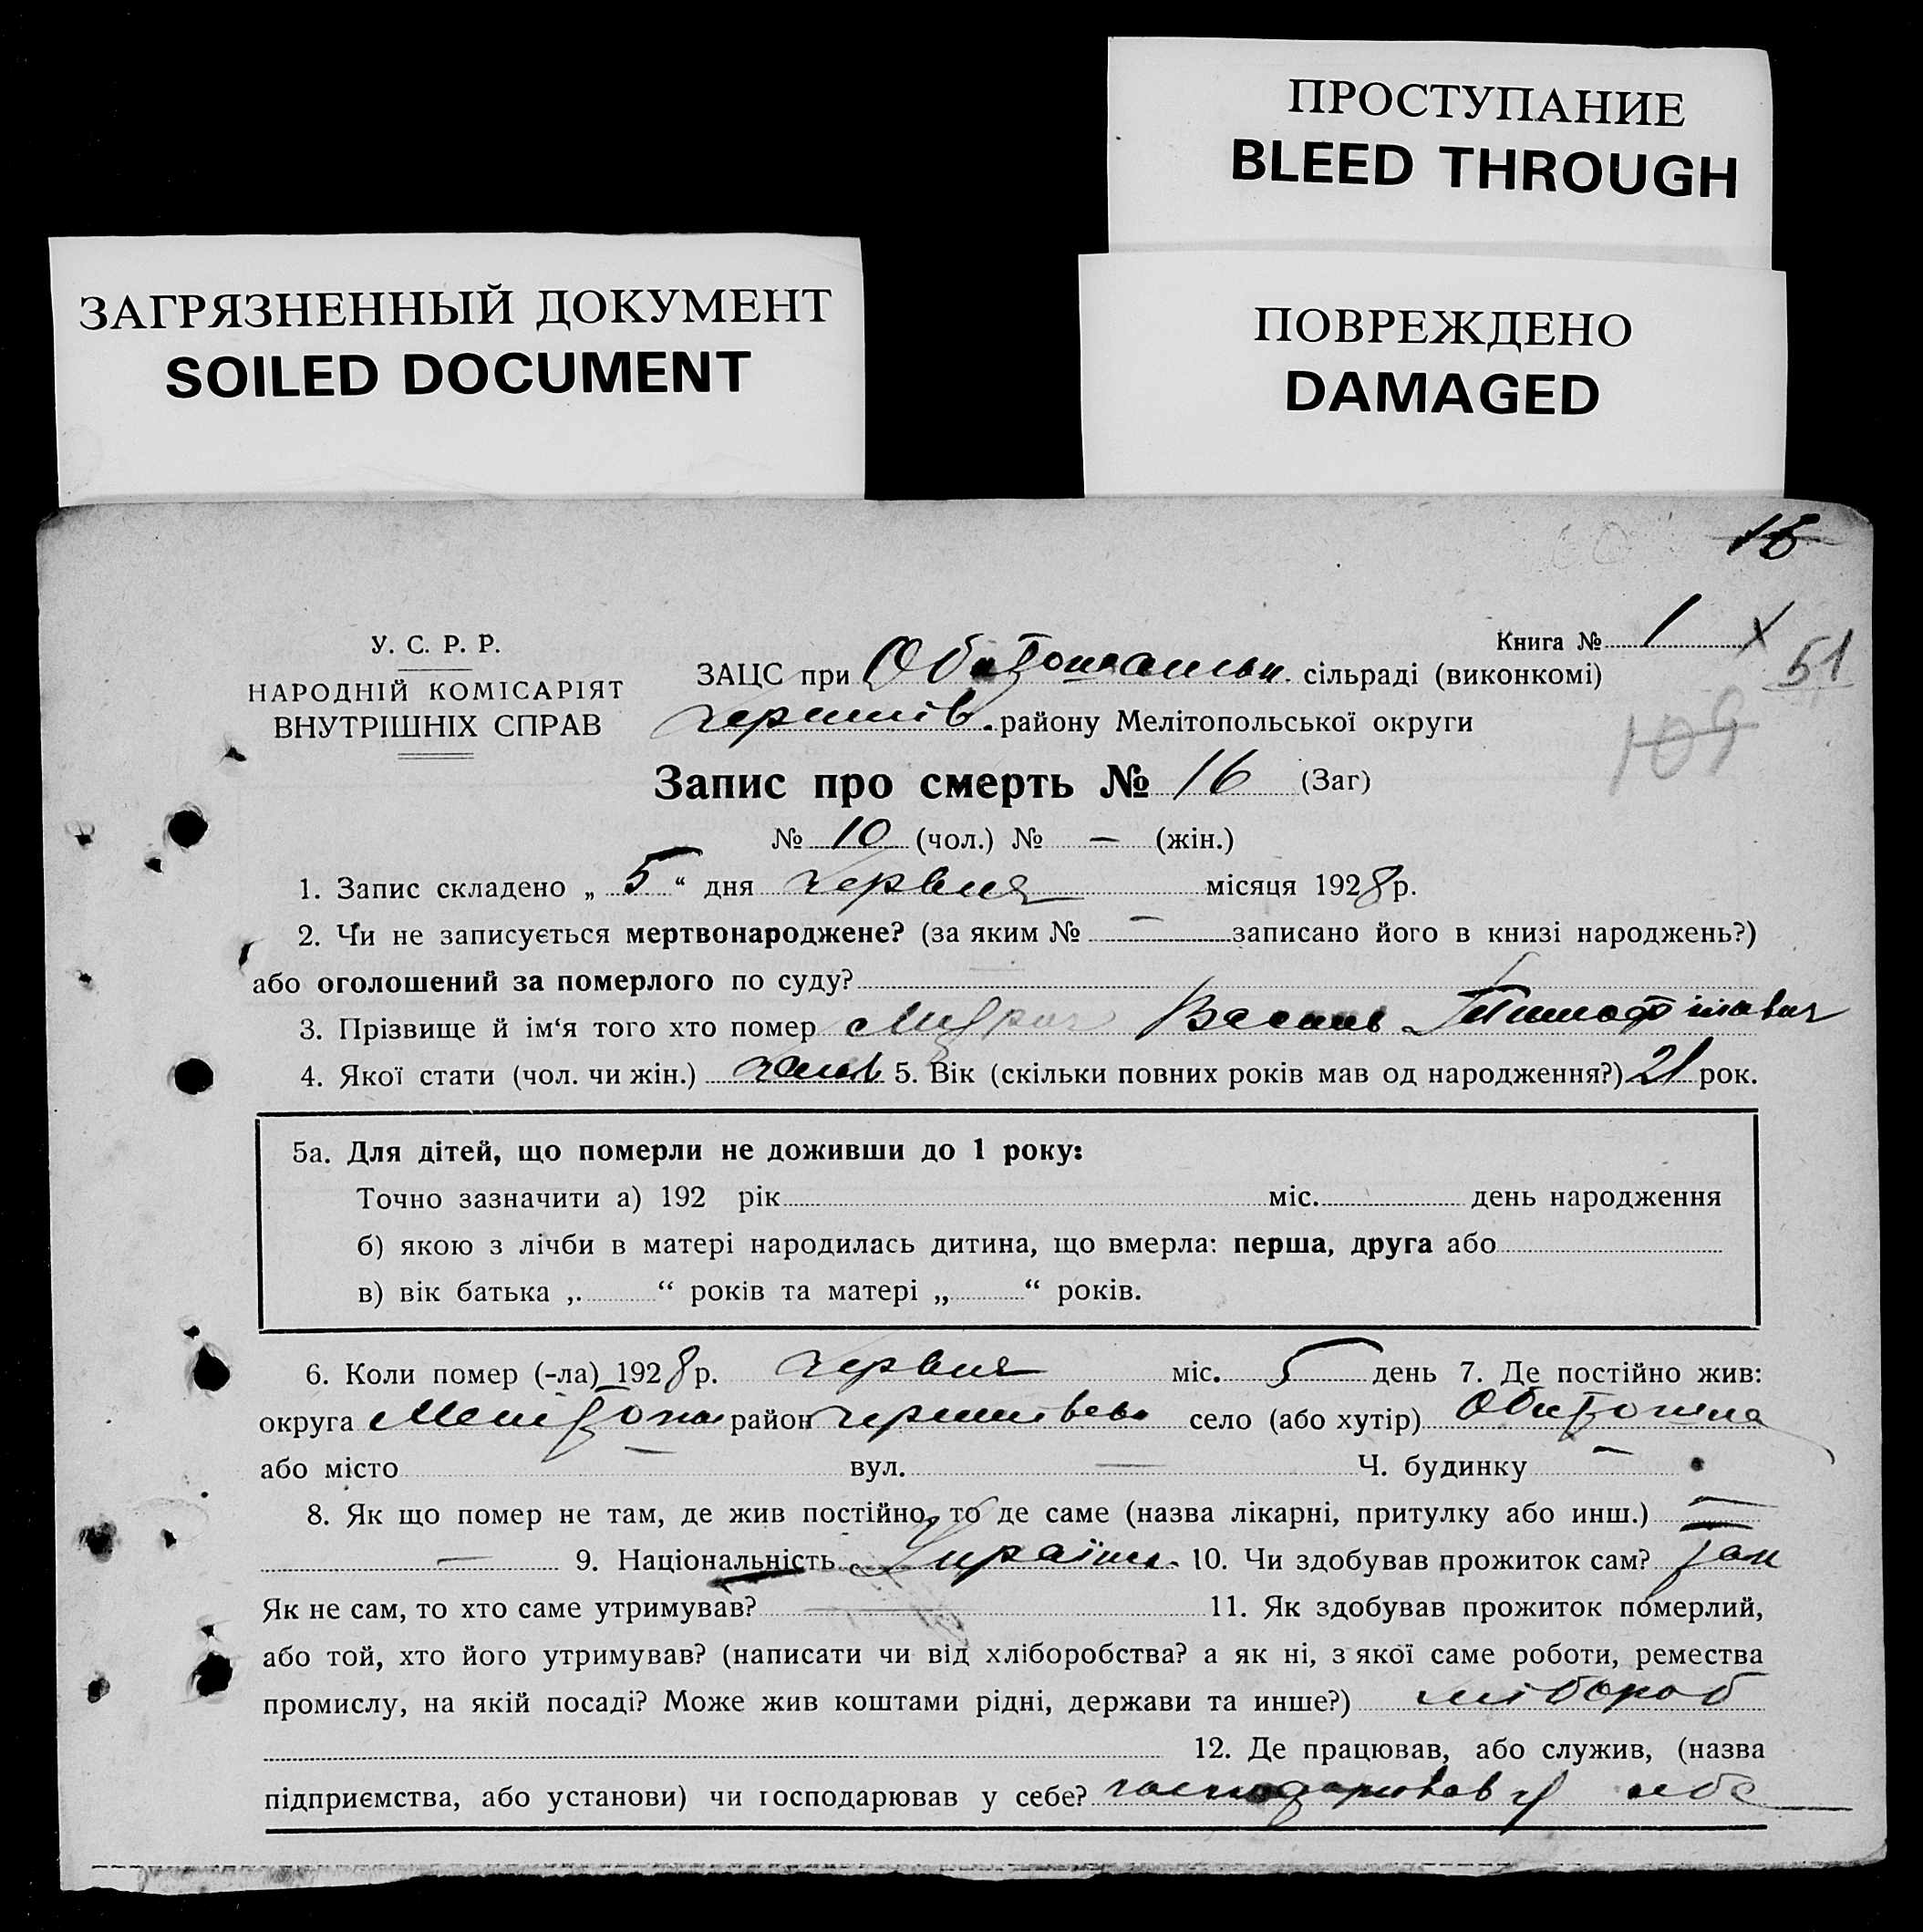 ПРОСТУПАНИЕ
BLEED THROUGH
ЗАГРЯЗНЕННЫЙ ДОКУМЕНТ
SOILED DOCUMENT
ПОВРЕЖДЕНО
DAMAGED
16
Книга № 1 X
51
109
У. С. Р. Р.
НАРОДНІЙ КОМІСАРІЯТ
ВНУТРІШНІХ СПРАВ
ЗАЦС при сільраді (виконкомі)
району Мелітопольської округи
Запис про смерть № 16 (Заг)
№ 10 (чол.) № — (жін.)
1. Запис складено „ 5 “ дня червня місяця 1928 р.
2. Чи не записується мертвонароджене? (за яким № — записано його в книзі народжень?)
або оголошений за померлого по суду?
3. Прізвище й ім‘я того хто помер Василь
4. Якої стати (чол. чи жін.) 5. Вік (скільки повних років мав од народження?) 21 рок.
5а. Для дітей, що померли не доживши до 1 року:
Точно зазначити а) 192 рік міс. день народження
б) якою з лічби в матері народилась дитина, що вмерла: перша, друга або
в) вік батька „ “ років та матері „ “ років.
6. Коли помер (-ла) 1928 р. червня міс. 5 день 7. Де постійно жив:
округа район село (або хутір) Обиточна
або місто — вул. — Ч. будинку —
8. Як що помер не там, де жив постійно, то де саме (назва лікарні, притулку або инш.) —
— 9. Національність 10. Чи здобував прожиток сам? так
Як не сам, то хто саме утримував? — 11. Як здобував прожиток померлий,
або той, хто його утримував? (написати чи від хліборобства? а як ні, з якої саме роботи, ремества
промислу, на якій посаді? Може жив коштами рідні, держави та инше?) хлібороб
12. Де працював, або служив, (назва
підприємства, або установи) чи господарював у себе? господарював у себе